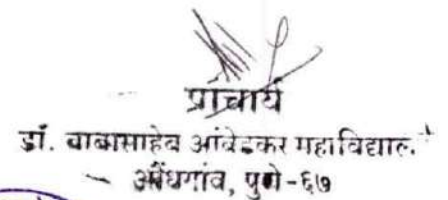 प्राचार्य
डॉ. बाबासाहेब आंबेडकर महाविद्याल.
औंधगांव, पुणे-६७